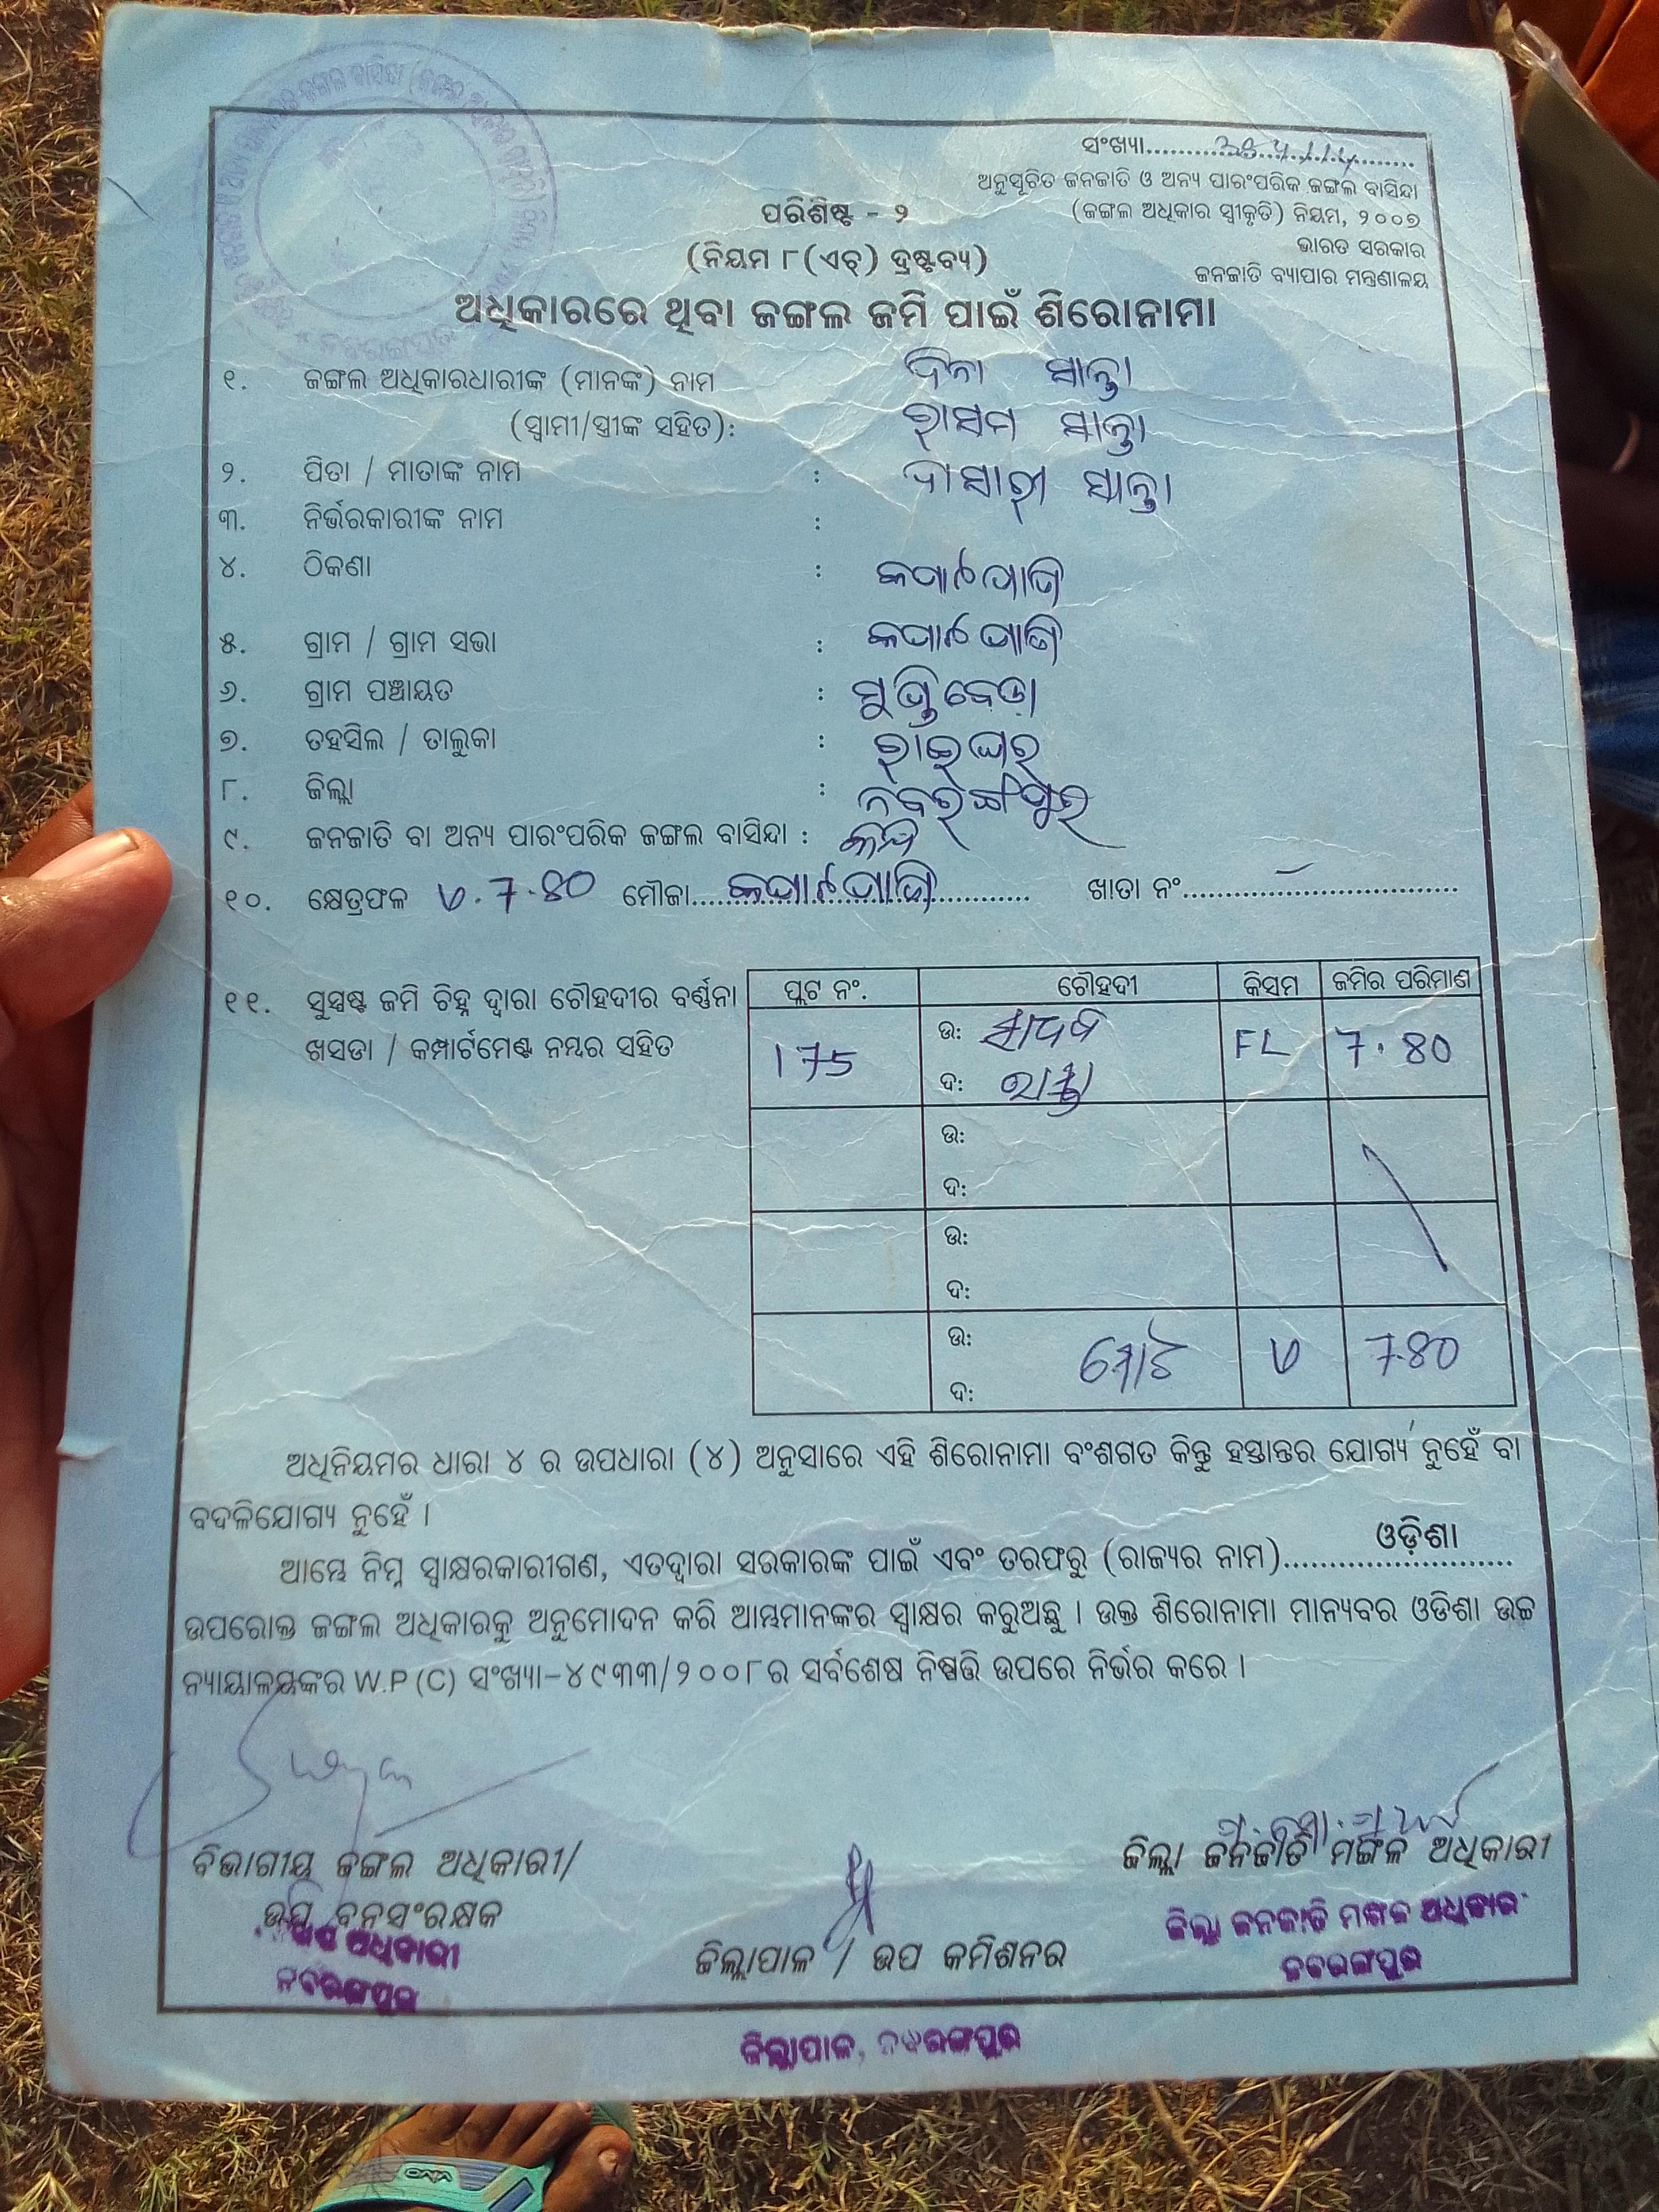 ସଂଖ୍ୟା
ଅନୁସୂଚିତ ଜନଜାତି ଓ ଅନ୍ୟ ପାରଂପରିକ ଜଙ୍ଗଲ ବାସିନ୍ଦା
(ଜଙ୍ଗଲ ଅଧିକାର ସ୍ୱୀକୃତି) ନିୟମ, ୨୦୦୭
ଭାରତ ସରକାର
ଜନଜାତି ବ୍ୟାପାର ମନ୍ତ୍ରଣାଳୟ
ପରିଶିଷ୍ଟ - ୨
(ନିୟମ ୮(ଏଚ୍) ଦ୍ରଷ୍ଟବ୍ୟ)
ଅଧିକାରରେ ଥିବା ଜଙ୍ଗଲ ଜମି ପାଇଁ ଶିରୋନାମା
୧. ଜଙ୍ଗଲ ଅଧିକାରଧାରୀଙ୍କ (ମାନଙ୍କ) ନାମ ଦିନା ସାନ୍ତା
(ସ୍ୱାମୀ/ସ୍ତ୍ରୀଙ୍କ ସହିତ): ରାସମ ସାନ୍ତା
୨. ପିତା / ମାତାଙ୍କ ନାମ : ଦାସାରୀ ସାନ୍ତା
୩. ନିର୍ଭରକାରୀଙ୍କ ନାମ :
୪. ଠିକଣା :
୫. ଗ୍ରାମ / ଗ୍ରାମ ସଭା :
୬. ଗ୍ରାମ ପଞ୍ଚାୟତ :
୭. ତହସିଲ / ତାଲୁକା : ରାଇଘର
୮. ଜିଲ୍ଲା : ନବରଙ୍ଗପୁର
୯. ଜନଜାତି ବା ଅନ୍ୟ ପାରଂପରିକ ଜଙ୍ଗଲ ବାସିନ୍ଦା : କନ୍ଧ
୧୦. କ୍ଷେତ୍ରଫଳ ୭.7.80 ମୌଜା ଖାତା ନଂ
୧୧. ସୁସ୍ପଷ୍ଟ ଜମି ଚିହ୍ନ ଦ୍ୱାରା ଚୌହଦୀର ବର୍ଣ୍ଣନା
ଖସଡା / କମ୍ପାର୍ଟମେଣ୍ଟ ନମ୍ବର ସହିତ
ପ୍ଲଟ ନଂ. ଚୌହଦୀ କିସମ ଜମିର ପରିମାଣ
175 ଉ: FL 7.80
ଦ: ରାସ୍ତା
ଉ:
ଦ:
ଉ:
ଦ:
ଉ: ମୋଟ 7.80
ଦ:
ଅଧିନିୟମର ଧାରା ୪ ର ଉପଧାରା (୪) ଅନୁସାରେ ଏହି ଶିରୋନାମା ବଂଶଗତ କିନ୍ତୁ ହସ୍ତାନ୍ତର ଯୋଗ୍ୟ ନୁହେଁ ବା
ବଦଳିଯୋଗ୍ୟ ନୁହେଁ ।
ଆମ୍ଭେ ନିମ୍ନ ସ୍ୱାକ୍ଷରକାରୀଗଣ, ଏତଦ୍ୱାରା ସରକାରଙ୍କ ପାଇଁ ଏବଂ ତରଫରୁ (ରାଜ୍ୟର ନାମ) ଓଡ଼ିଶା
ଉପରୋକ୍ତ ଜଙ୍ଗଲ ଅଧିକାରକୁ ଅନୁମୋଦନ କରି ଆମ୍ଭମାନଙ୍କର ସ୍ୱାକ୍ଷର କରୁଅଛୁ । ଉକ୍ତ ଶିରୋନାମା ମାନ୍ୟବର ଓଡିଶା ଉଚ୍ଚ
ନ୍ୟାୟାଳୟଙ୍କର W.P (C) ସଂଖ୍ୟା-୪୯୩୩/୨୦୦୮ର ସର୍ବଶେଷ ନିଷ୍ପତ୍ତି ଉପରେ ନିର୍ଭର କରେ ।
ବିଭାଗୀୟ ଜଙ୍ଗଲ ଅଧିକାରୀ/
ଉପ ବନସଂରକ୍ଷକ
ଅଧିକାରୀ
ନବରଙ୍ଗପୁର
ଜିଲ୍ଲାପାଳ / ଉପ କମିଶନର
ଜିଲ୍ଲାପାଳ, ନବରଙ୍ଗପୁର
ଜିଲ୍ଲା ଜନଜାତି ମଙ୍ଗଳ ଅଧିକାରୀ
ଜିଲ୍ଲା ଜନଜାତି ମଙ୍ଗଳ ଅଧିକାରୀ
ନବରଙ୍ଗପୁର